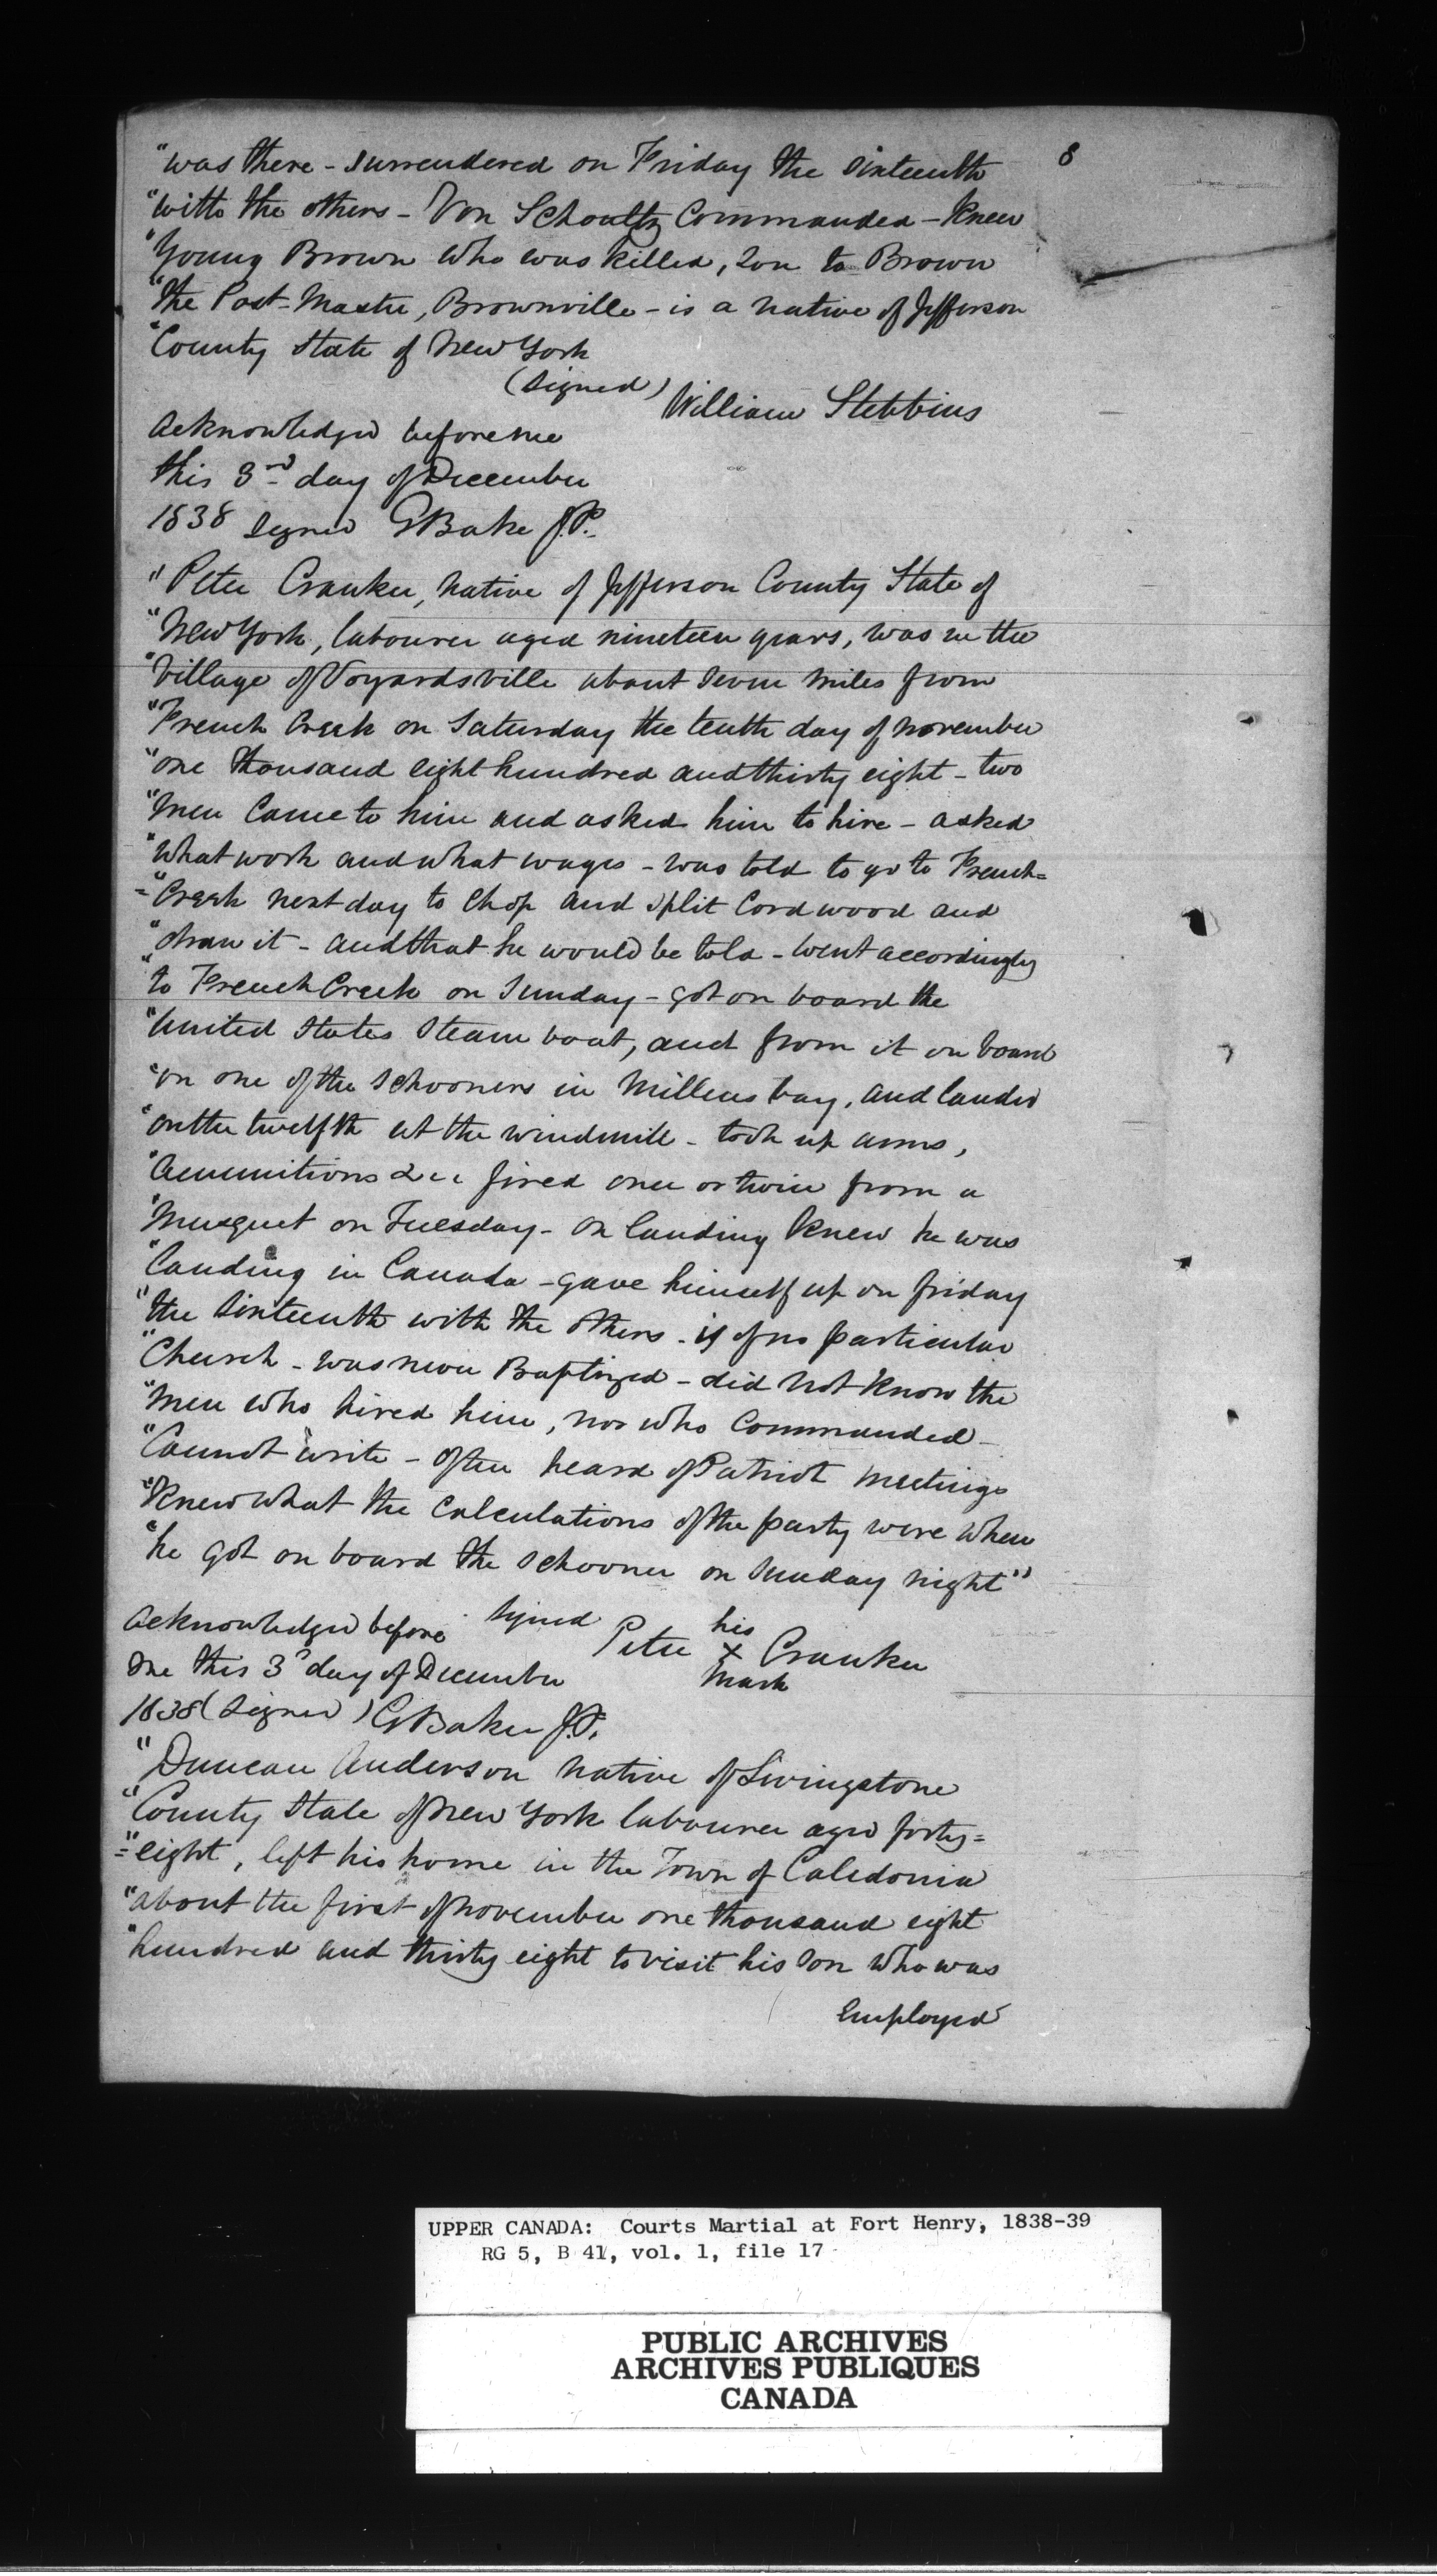 8
"was there - surrendered on Friday the sixteenth
"with the others - Von Schoultz Commanded - knew
"Young Brown who was killed, son to Brown
"the Post-Master, Brownville - is a native of Jefferson
"County State of New York
(signed) William Stebbins
Acknowledged before me
this 3rd day of December
1838 signed G Baker J.P.
"Peter Cranker, native of Jefferson County State of
"New York, labourer aged nineteen years, was in the
"Village of Voyardsville about seven miles from
"French Creek on Saturday the tenth day of November
"one thousand eight hundred and thirty eight - two
"men came to him and asked him to hire - asked
"what work and what wages - was told to go to French=
="Creek next day to chop and split Cord wood and
"draw it - and that he would be told - went accordingly
"to French Creek on Sunday - got on board the
"United States Steam boat, and from it on board
"on one of the schooners in Millens bay, and landed
"on the twelfth at the windmill - took up arms,
"Ammunitions &cc fired once or twice from a
"Musquet on Tuesday - On landing knew he was
"landing in Canada - gave himself up on friday
"the sixteenth with the others - is of no particular
"Church - was never Baptized - did not know the
"men who hired him, nor who Commanded -
"Cannot write - often heard of Patriot meetings
"knew what the calculations of the party were when
"he got on board the schooner on Sunday night"
Acknowledged before signed Peter his x mark Cranker
me this 3d day of December
1838 (signed) G Baker J.P.
"Duncan Anderson native of Livingstone
"County State of New York labourer aged forty=
="eight, left his home in the Town of Caledonia
"about the first of November one thousand eight
"hundred and thirty eight to visit his son who was
employed
UPPER CANADA: Courts Martial at Fort Henry, 1838-39
RG 5, B 41, vol. 1, file 17
PUBLIC ARCHIVES
ARCHIVES PUBLIQUES
CANADA